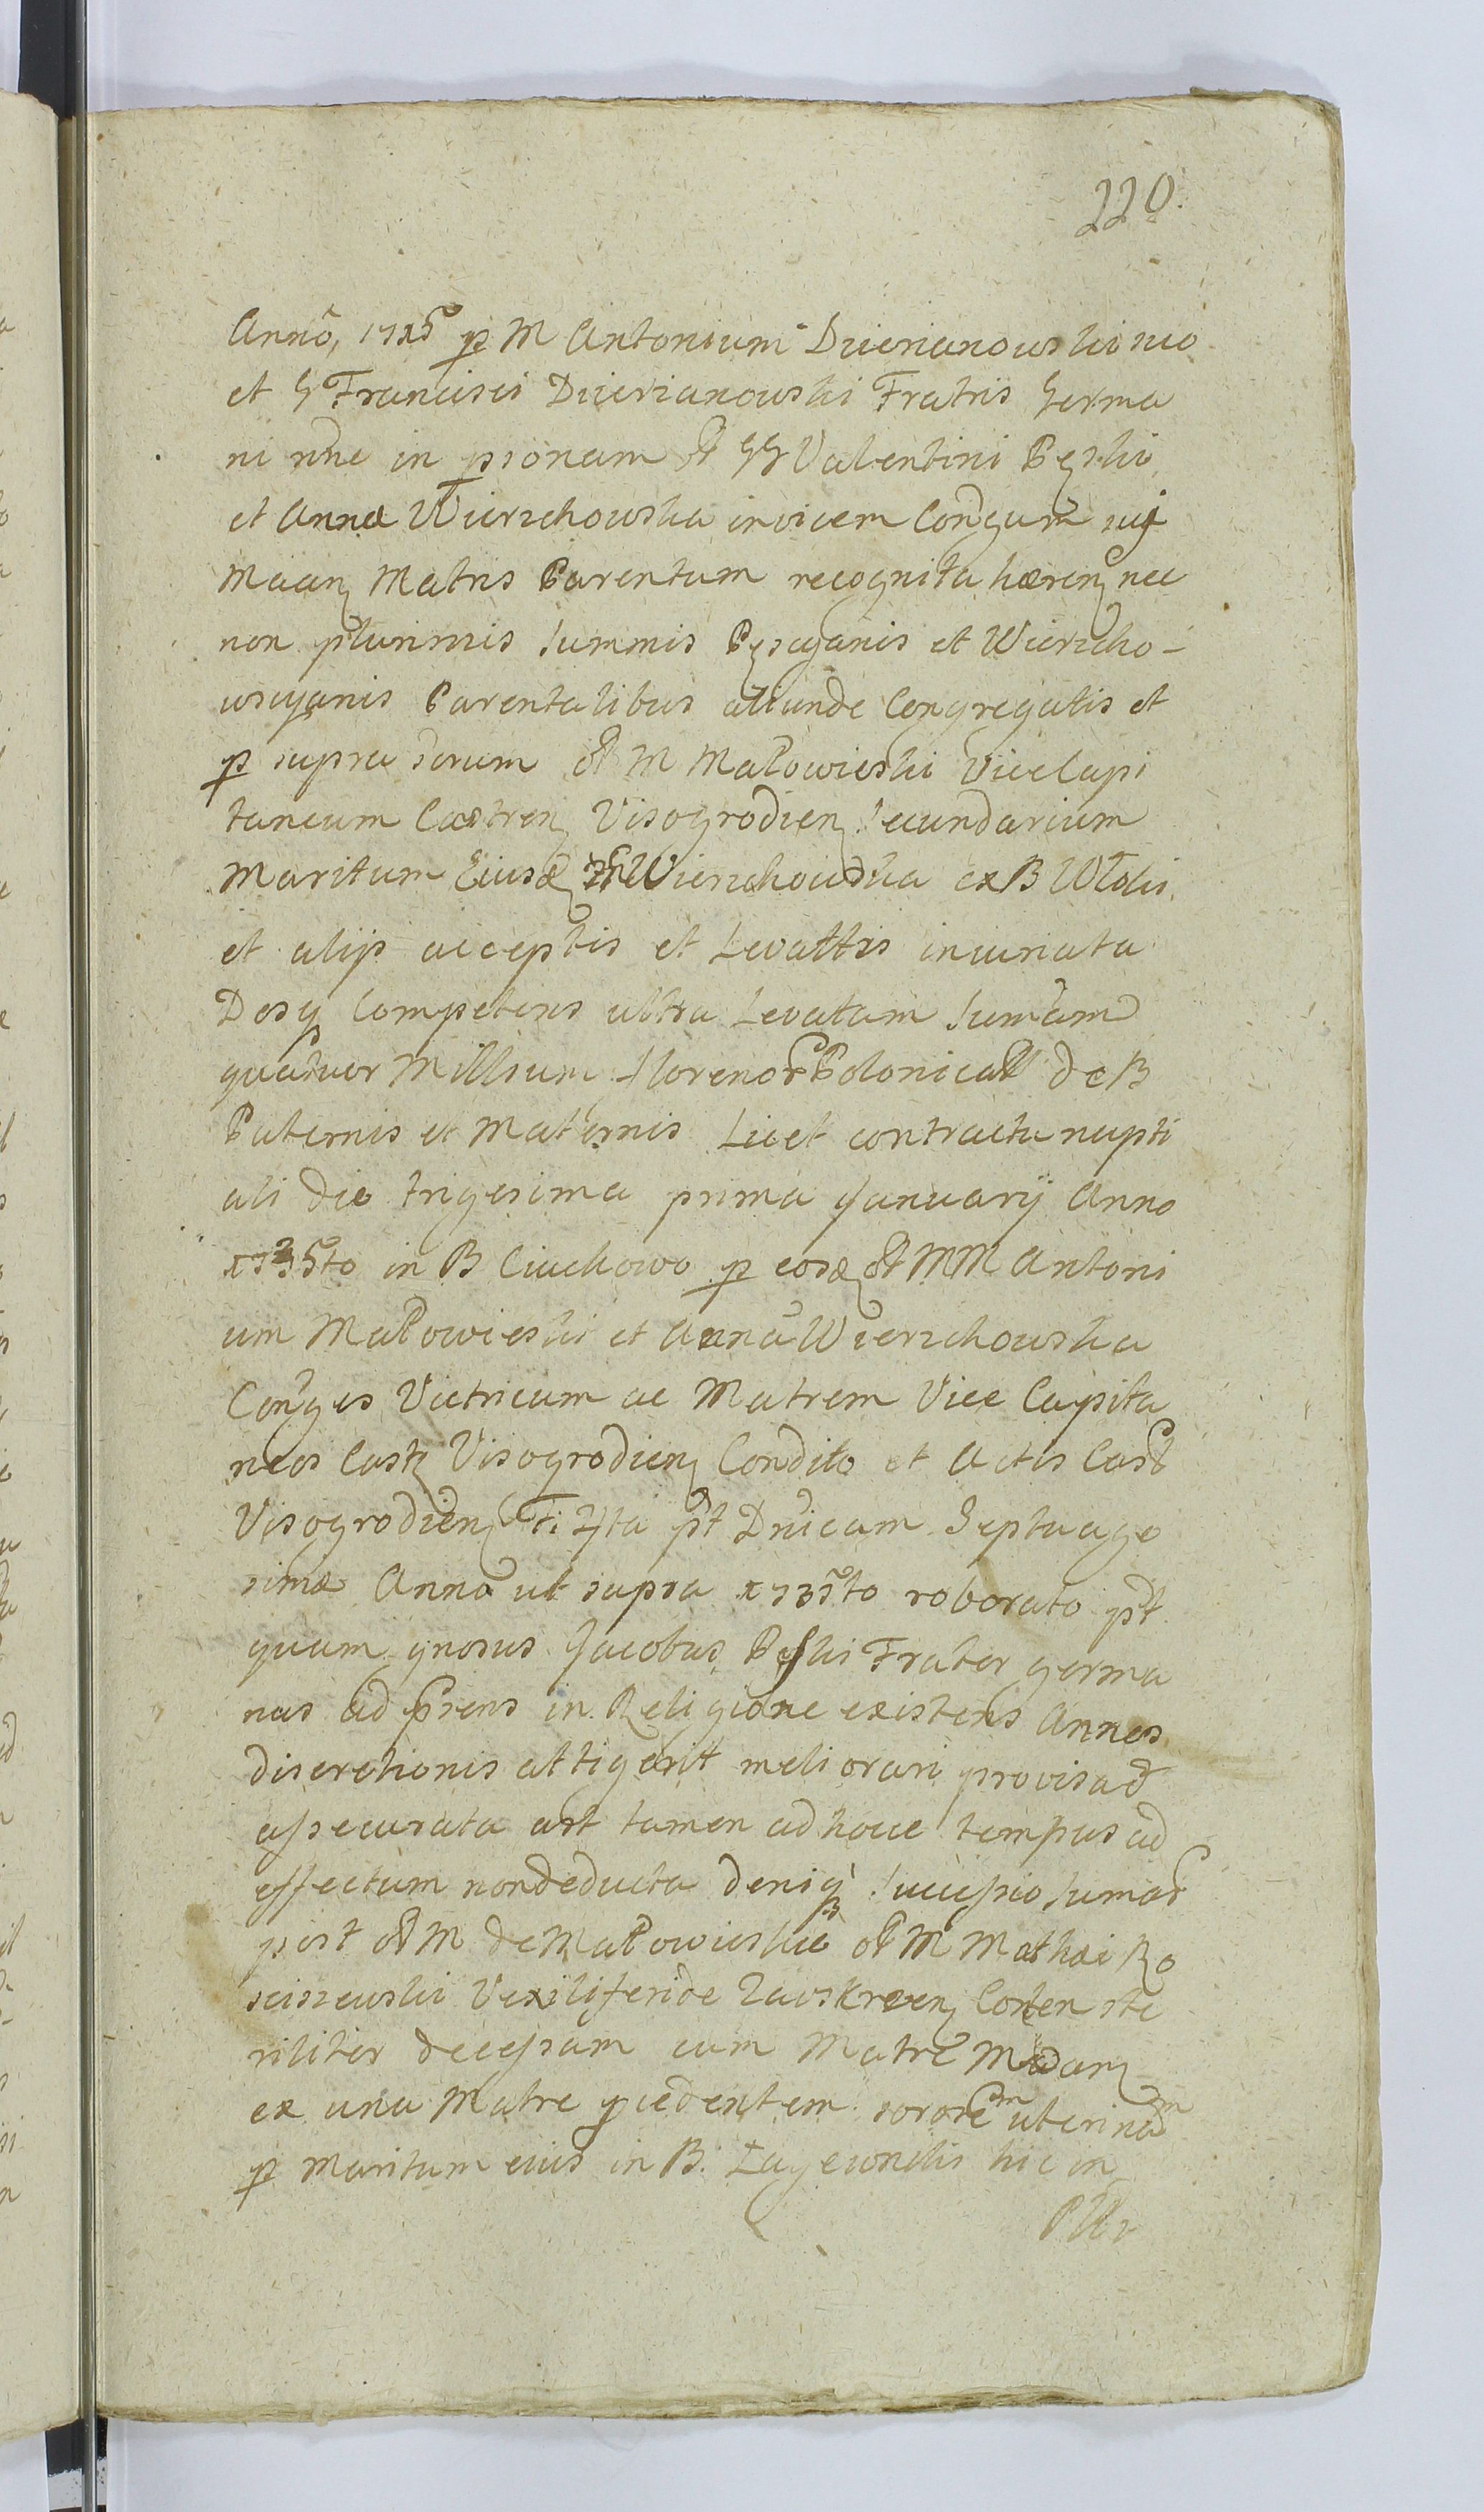 220.
Anno, 1725 p M Antonium Dzierzanowski suo
et G Francisci Dzierzanowski Fratris Germa
ni nne in psonam ol GG Valentini Pęski
et Anna Wierzchowska invicem Conjgum
Matris Parentum recognita hæren nec
non plurimis summis Pęscyanis et Wierzcho-
wscyanis Parentalibus aliunde Congregatis et
p supra ol M Małowieski Vice Capi
taneum Castren Visogrodien secundarium
Maritum Eiusd Wierzchowska ex B
et alijs acceptis et Levattis iniuriata
Dosq Competens ultra Levatam sumam
quatuor Millium florenor Polonical de B
Paternis et Maternis Licet contractu nupti
ali die trigesima prima Januarij Anno
1735to in B Ciuchowo p eosd ol MM Antoni
um Małowieski et Anna Wierzchowska
Conjges Vitricum ac Matrem Vice Capita
neos Castr Visogrodien Condito et Actis Cast
Visogrodien pt Dnicam Septuage
simæ Anno ut supra 1735to roborato pt
quam gnosus Jacobus Pęski Frater germa
nus ad prens in Religione existens Annos
discretionis attigerit meliorari provisa et
assecurata ast tamen ad hocce tempus ad
effectum non deducta deniq successio sumar
post ol M de Małowieskie ol M Mathæi Ro
sciszewski Vexiliferide Zawskrzen Conten ste
riliter decessam cum Matre
ex una Matre pcedentem sororem uterinam
p Maritum eius in B. Łagewniki hic in